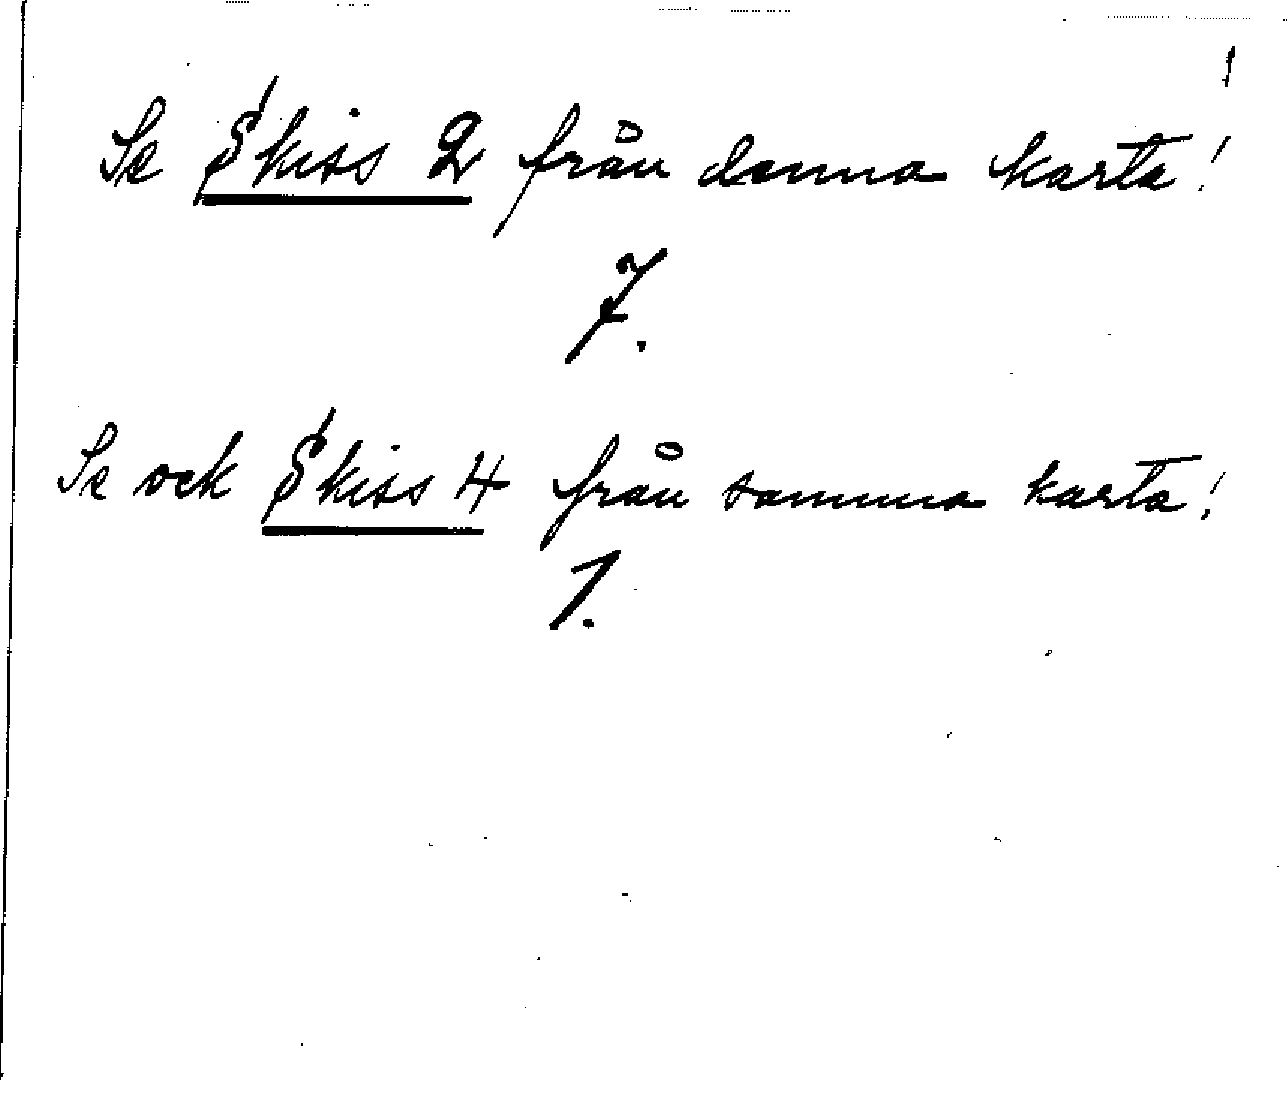 Se Skiss 2 från denna karta!
7.
Se ock Skiss 4 från samma karta!
1.